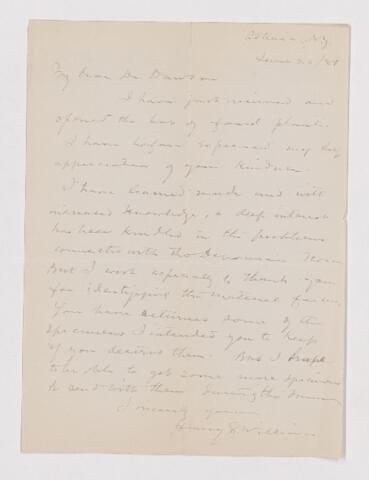 Ithaca, N.Y.
June 26/88
My dear Dr. Dawson
I have just received and
opened the box of fossil plants.
I have before expressed my high
appreciation of your kindness.
I have learned much and with
increased knowledge, a deep interest
has been kindled in the problems
connected with the Devonian flora
But I wish especially to thank you
for identifying the material given,
You have returned some of the
specimens I intended you to keep
if you desired them. But I hope
to be able to get some more specimens
to send with them during the summer
Sincerely yours
Henry S. Williams